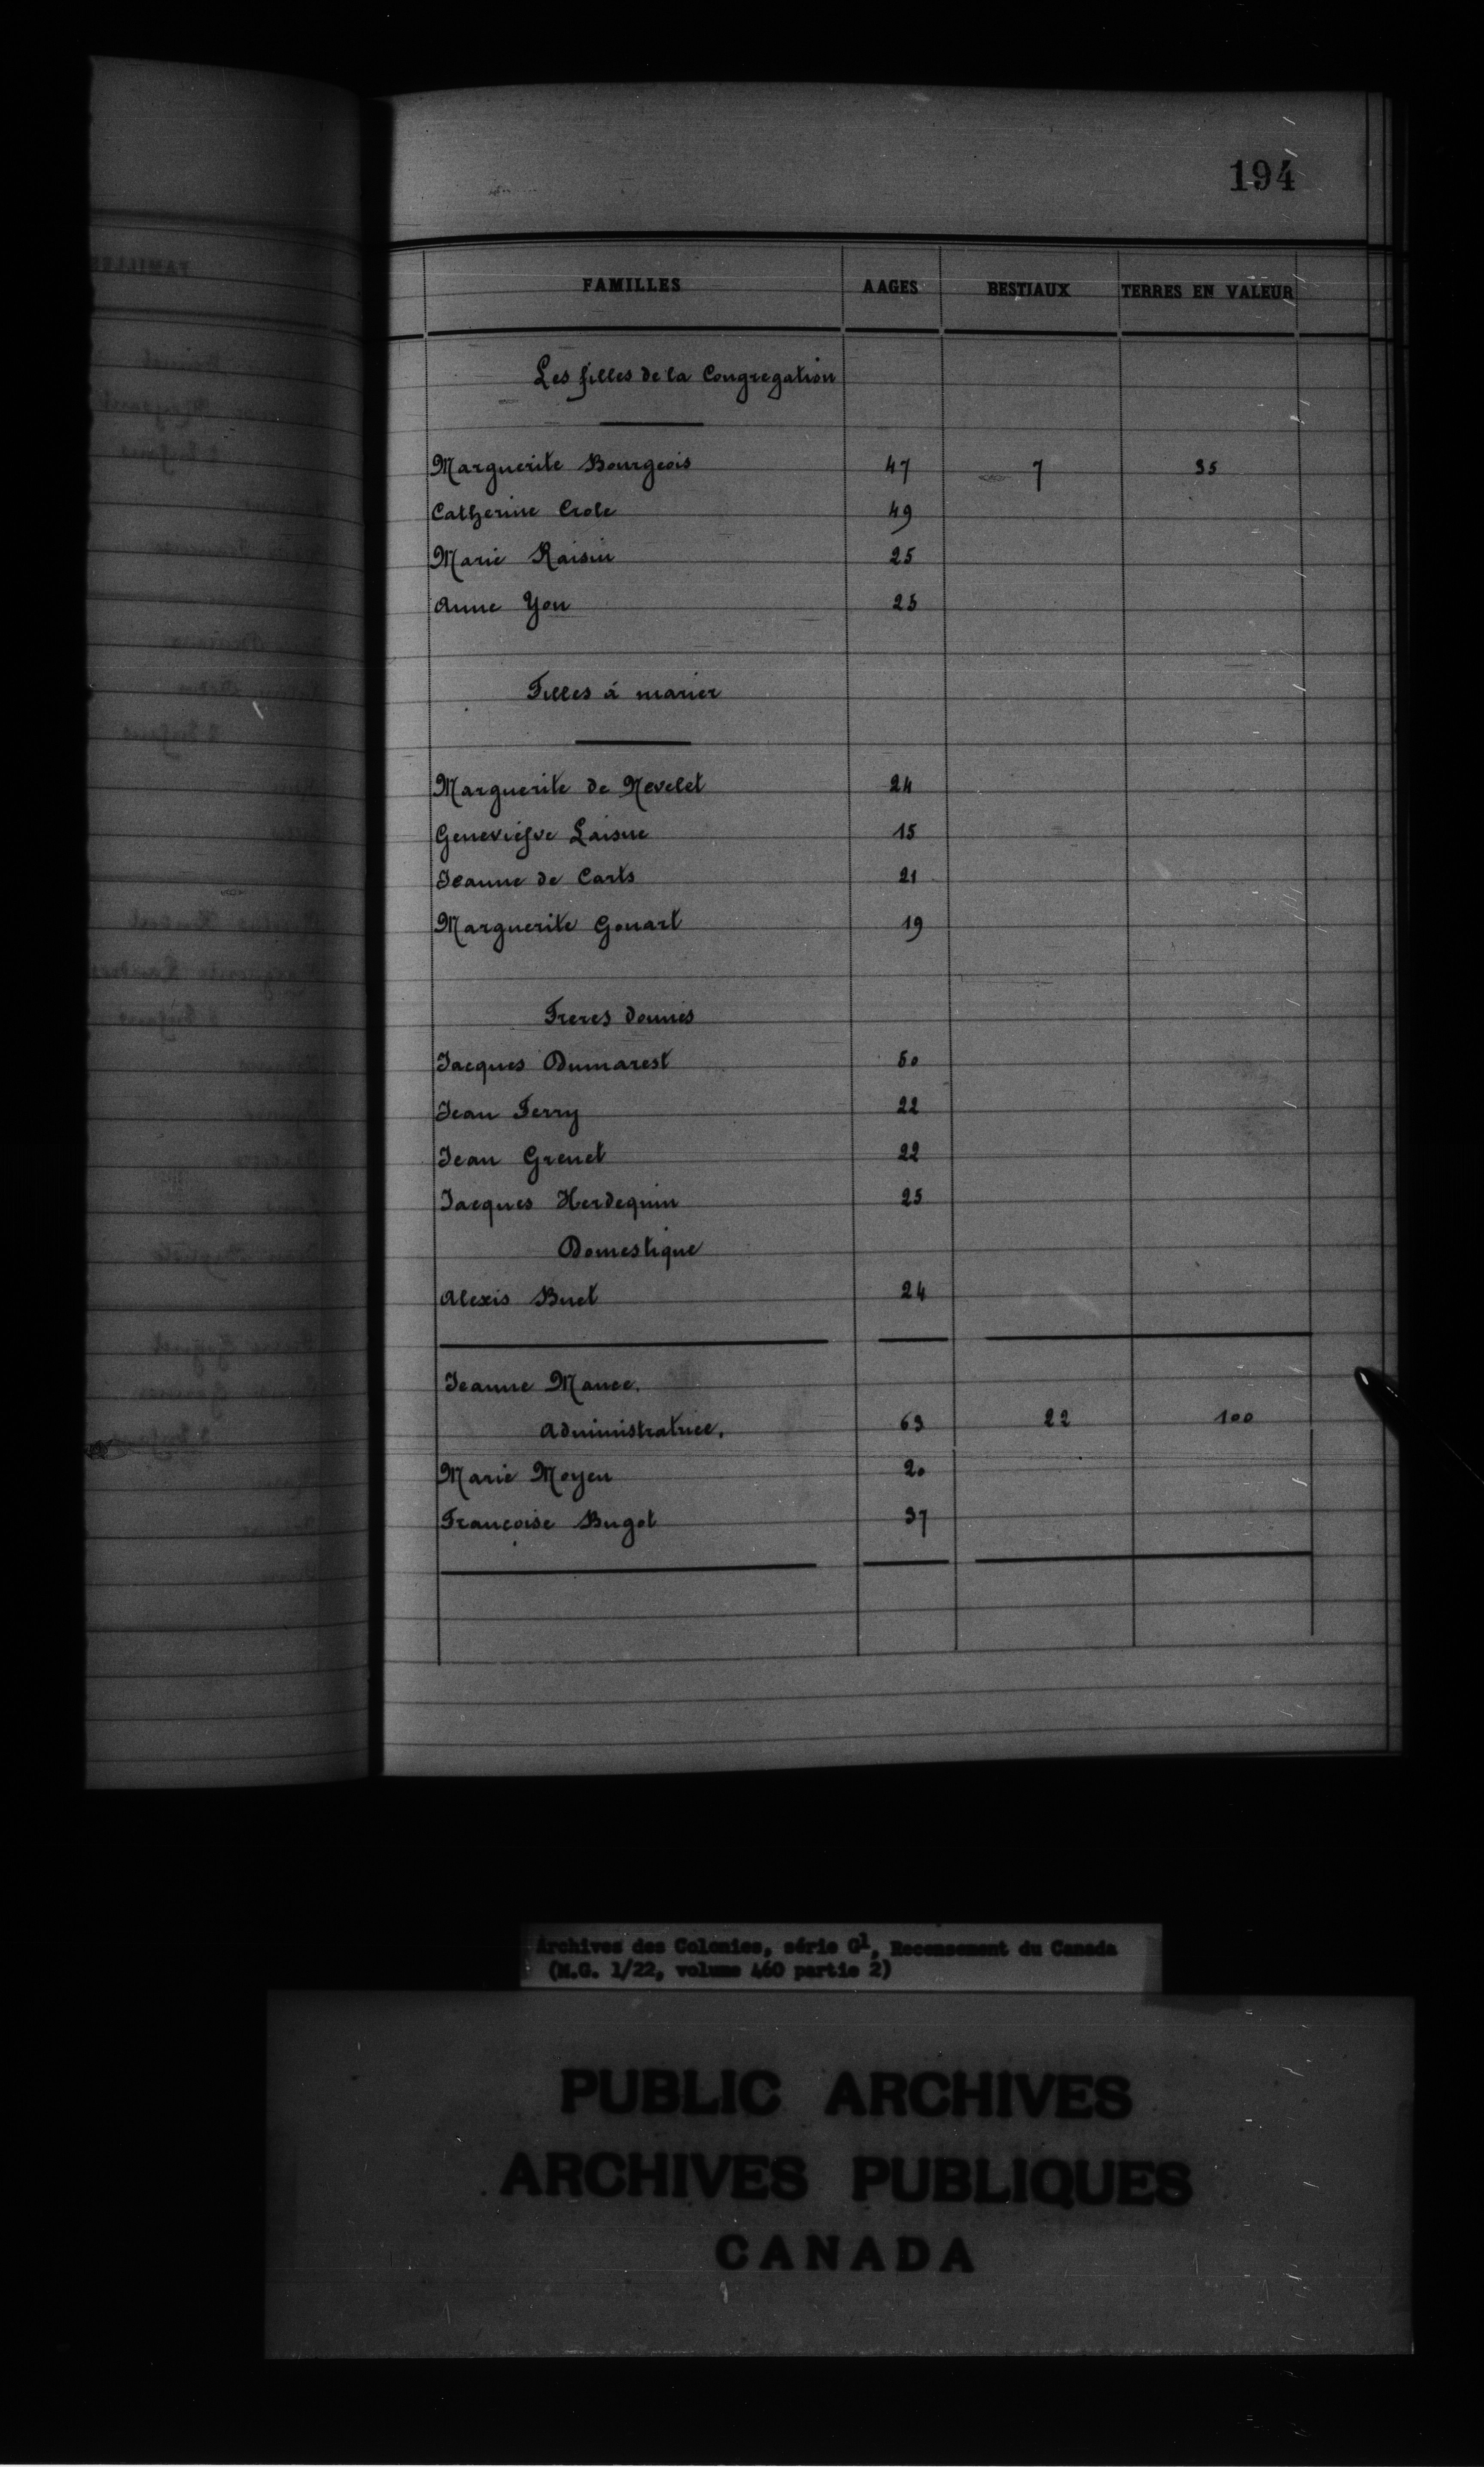 194
FAMILLES AAGES BESTIAUX TERRES EN VALEUR
Les filles de la Congregation
Marguerite Bourgeois 47 7 35
Catherine Crole 49
Marie Raisin 25
Anne Yon 25
Filles à marier
Marguerite de Nevelet 24
Geneviefve Laisne 15
Jeanne de Carts 21
Marguerite Gouart 19
Freres donnés
Jacques Dumarest 50
Jean Ferry 22
Jean Grenet 22
Jacques Herdequin 25
Domestique
Alexis Buet 24
Jeanne Mance.
Administratrice. 63 22 100
Marie Moyen 20
Francoise Bugot 37
Archives des Colonies, série G1, Recensement du Canada
(M.G. 1/22, volume 460 partie 2)
PUBLIC ARCHIVES
ARCHIVES PUBLIQUES
CANADA